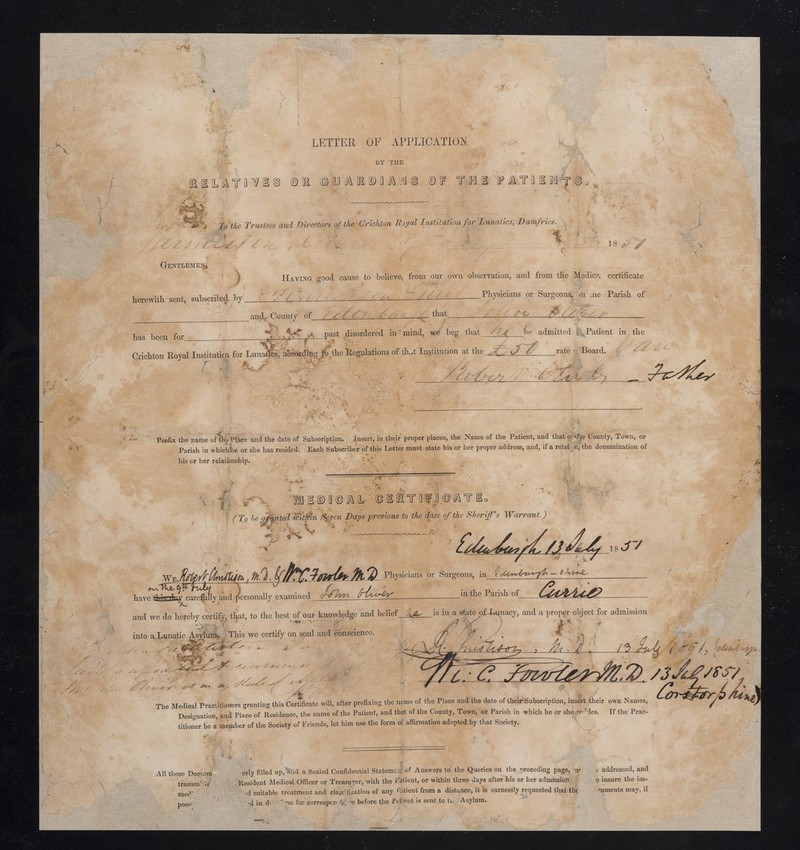 LETTER OF APPLICATION
BY THE
RELATIVES OR GUARDIANS OF THE PATIENTS.
To the Trustees and Directors of the Crichton Royal Institution for Lunatics, Dumfries.
1851
GENTLEMEN,
HAVING good cause to believe, from our own observation, and from the Medical certificate
herewith sent, subscribed by Physicians or Surgeons, in the Parish of
and County of Edinburgh that John Oliver
has been for past disordered in mind, we beg that he be admitted Patient in the
Crichton Royal Institution for Lunatics, according to the Regulations of that Institution at the £50 rate Board.
Robert Oliver – Father
Prefix the name of the Place and the date of Subscription. Insert, in their proper places, the Name of the Patient, and that of the County, Town, or
Parish in which he or she has resided. Each Subscriber of this Letter must state his or her proper address, and, if a relative, the denomination of
his or her relationship.
MEDICAL CERTIFICATE.
(To be granted within Seven Days previous to the date of the Sheriff's Warrant.)
Edinburgh 13 July 1851
WE, Robert Christison, M.D. & Wm. C. Fowler M.D. Physicians or Surgeons, in Edinburgh-shire
on the 9th July
have carefully and personally examined John Oliver in the Parish of Currie
and we do hereby certify, that, to the best of our knowledge and belief he is in a state of Lunacy, and a proper object for admission
into a Lunatic Asylum. This we certify on soul and conscience.
R. Christison, M.D. 13 July 1851, Edinburgh
Wm. C. Fowler M.D. 13 July 1851
Corstorphine
The Medical Practitioners granting this Certificate will, after prefixing the name of the Place and the date of their Subscription, insert their own Names,
Designation, and Place of Residence, the name of the Patient, and that of the County, Town, or Parish in which he or she resides. If the Prac-
titioner be a member of the Society of Friends, let him use the form of affirmation adopted by that Society.
All these Docum erly filled up, and a Sealed Confidential Statement of Answers to the Queries on the preceding page, addressed, and
transm Resident Medical Officer or Treasurer, with the Patient, or within three days after his or her admission to insure the im-
med d suitable treatment and classification of any Patient from a distance, it is earnestly requested that the uments may, if
poss d in for correspon before the Patient is sent to the Asylum.